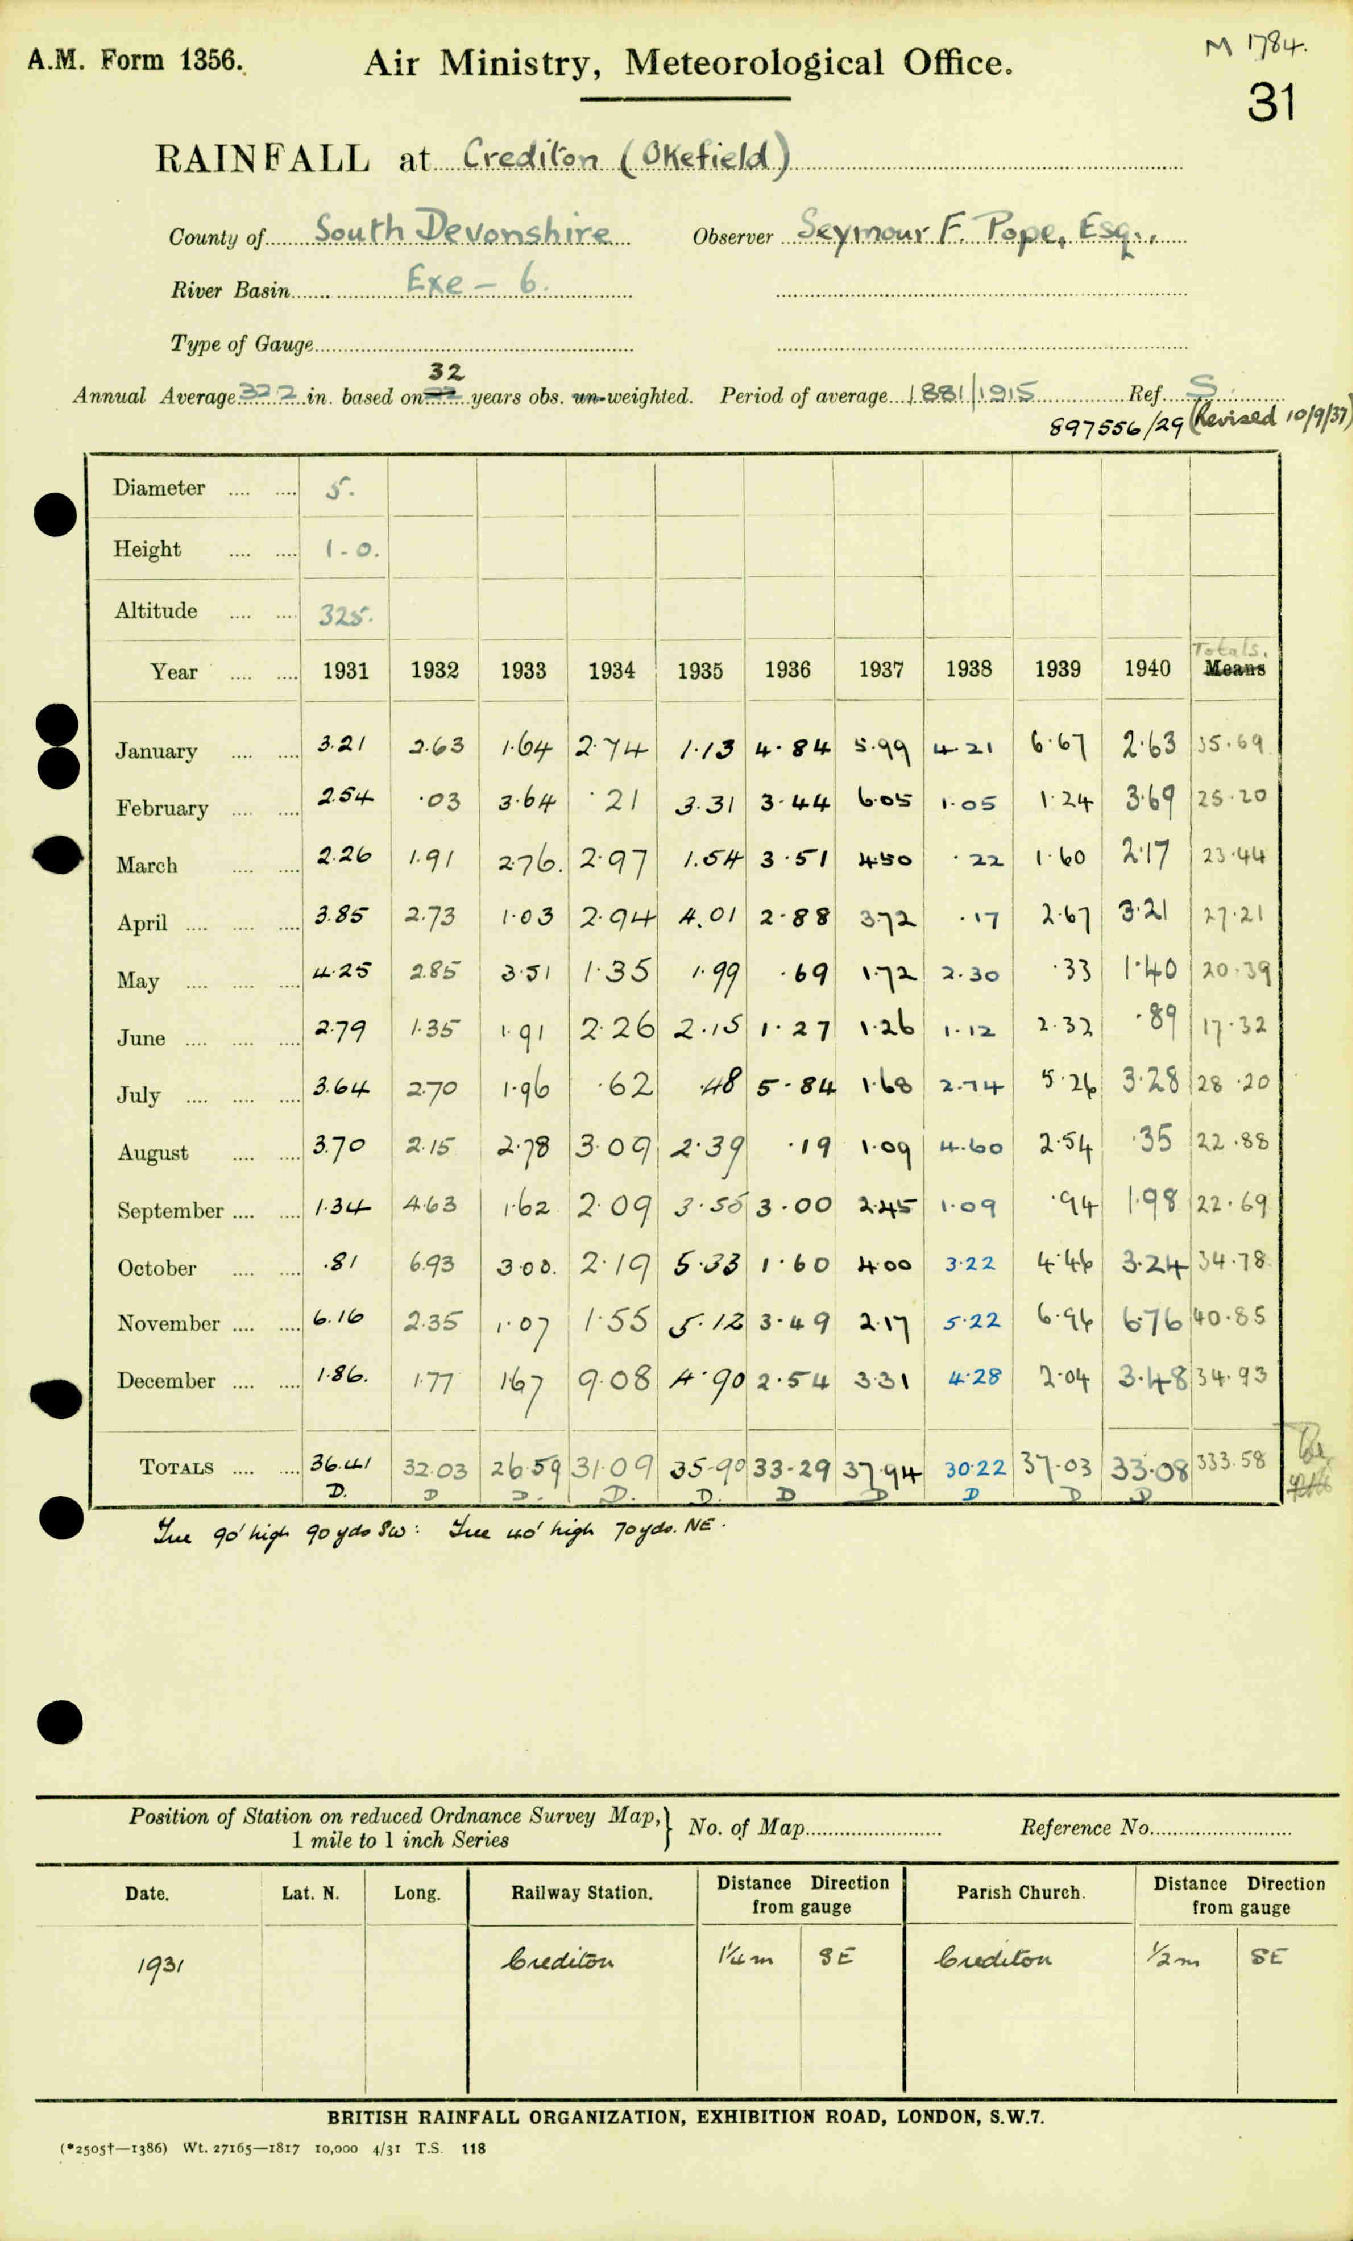 A.M. Form 1356. Air Ministry, Meteorological Office. M 1784.
31
RAINFALL at Crediton (Okefield)
County of South Devonshire Observer Seymour F. Pope, Esq.,
River Basin Exe - 6.
Type of Gauge
32
Annual Average 32.2 in. based on years obs. un-weighted. Period of average 1881/1915 Ref. S.
897556/29 (Revised 10/9/37)
Diameter .... .... 5.
Height .... .... 1-0.
Altitude .... .... 325.
Totals.
Year .... .... 1931 1932 1933 1934 1935 1936 1937 1938 1939 1940 Means
January .... .... 3.21 2.63 1.64 2.74 1.13 4.84 5.99 4.21 6.67 2.63 35.69
February .... .... 2.54 .03 3.64 .21 3.31 3.44 6.05 1.05 1.24 3.69 25.20
March .... .... 2.26 1.91 2.76. 2.97 1.54 3.51 4.50 .22 1.60 2.17 23.44
April .... .... .... 3.85 2.73 1.03 2.94 4.01 2.88 3.72 .17 2.67 3.21 27.21
May .... .... .... 4.25 2.85 3.51 1.35 1.99 .69 1.72 2.30 .33 1.40 20.39
June .... .... .... 2.79 1.35 1.91 2.26 2.15 1.27 1.26 1.12 2.32 .89 17.32
July .... .... .... 3.64 2.70 1.96 .62 .48 5.84 1.68 2.74 5.26 3.28 28.20
August .... .... 3.70 2.15 2.78 3.09 2.39 .19 1.09 4.60 2.54 .35 22.88
September .... .... 1.34 4.63 1.62 2.09 3.55 3.00 2.45 1.09 .94 1.98 22.69
October .... .... .81 6.93 3.00. 2.19 5.33 1.60 4.00 3.22 4.46 3.24 34.78
November .... .... 6.16 2.35 1.07 1.55 5.12 3.49 2.17 5.22 6.96 6.76 40.85
December .... .... 1.86. 1.77 1.67 9.08 4.90 2.54 3.31 4.28 2.04 3.48 34.93
TOTALS .... .... 36.41 32.03 26.59 31.09 35.90 33.29 37.94 30.22 37.03 33.08 333.58
D. D D. D. D. D D D D D
Tree 90' high 90 yds SW: Tree 40' high 70 yds. NE.
Position of Station on reduced Ordnance Survey Map,} No. of Map Reference No.
1 mile to 1 inch Series
Date. Lat. N. Long. Railway Station. Distance Direction from gauge Parish Church. Distance Direction from gauge
1931 Crediton 1¼ m SE Crediton ½ m SE
BRITISH RAINFALL ORGANIZATION, EXHIBITION ROAD, LONDON, S.W.7.
(*2505†—1386) Wt. 27165—1817 10,000 4/31 T.S. 118